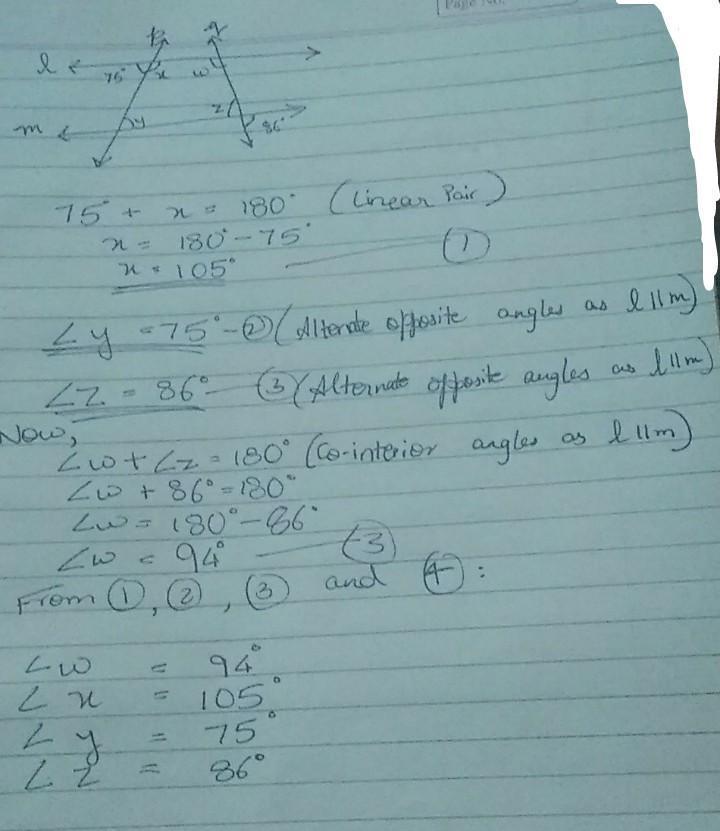 Page No.
p q
l 75° x w
z
m y 86°
75° + x = 180° (Linear Pair)
x = 180° - 75°
x = 105° ①
∠y = 75° - ② (Alternate opposite angles as l ll m)
∠z = 86° - ③ (Alternate opposite angles as l ll m)
Now,
∠w + ∠z = 180° (Co-interior angles as l ll m)
∠w + 86° = 180°
∠w = 180° - 86°
∠w = 94° ③
From ①, ②, ③ and ④ :
∠w = 94°
∠x = 105°
∠y = 75°
∠z = 86°